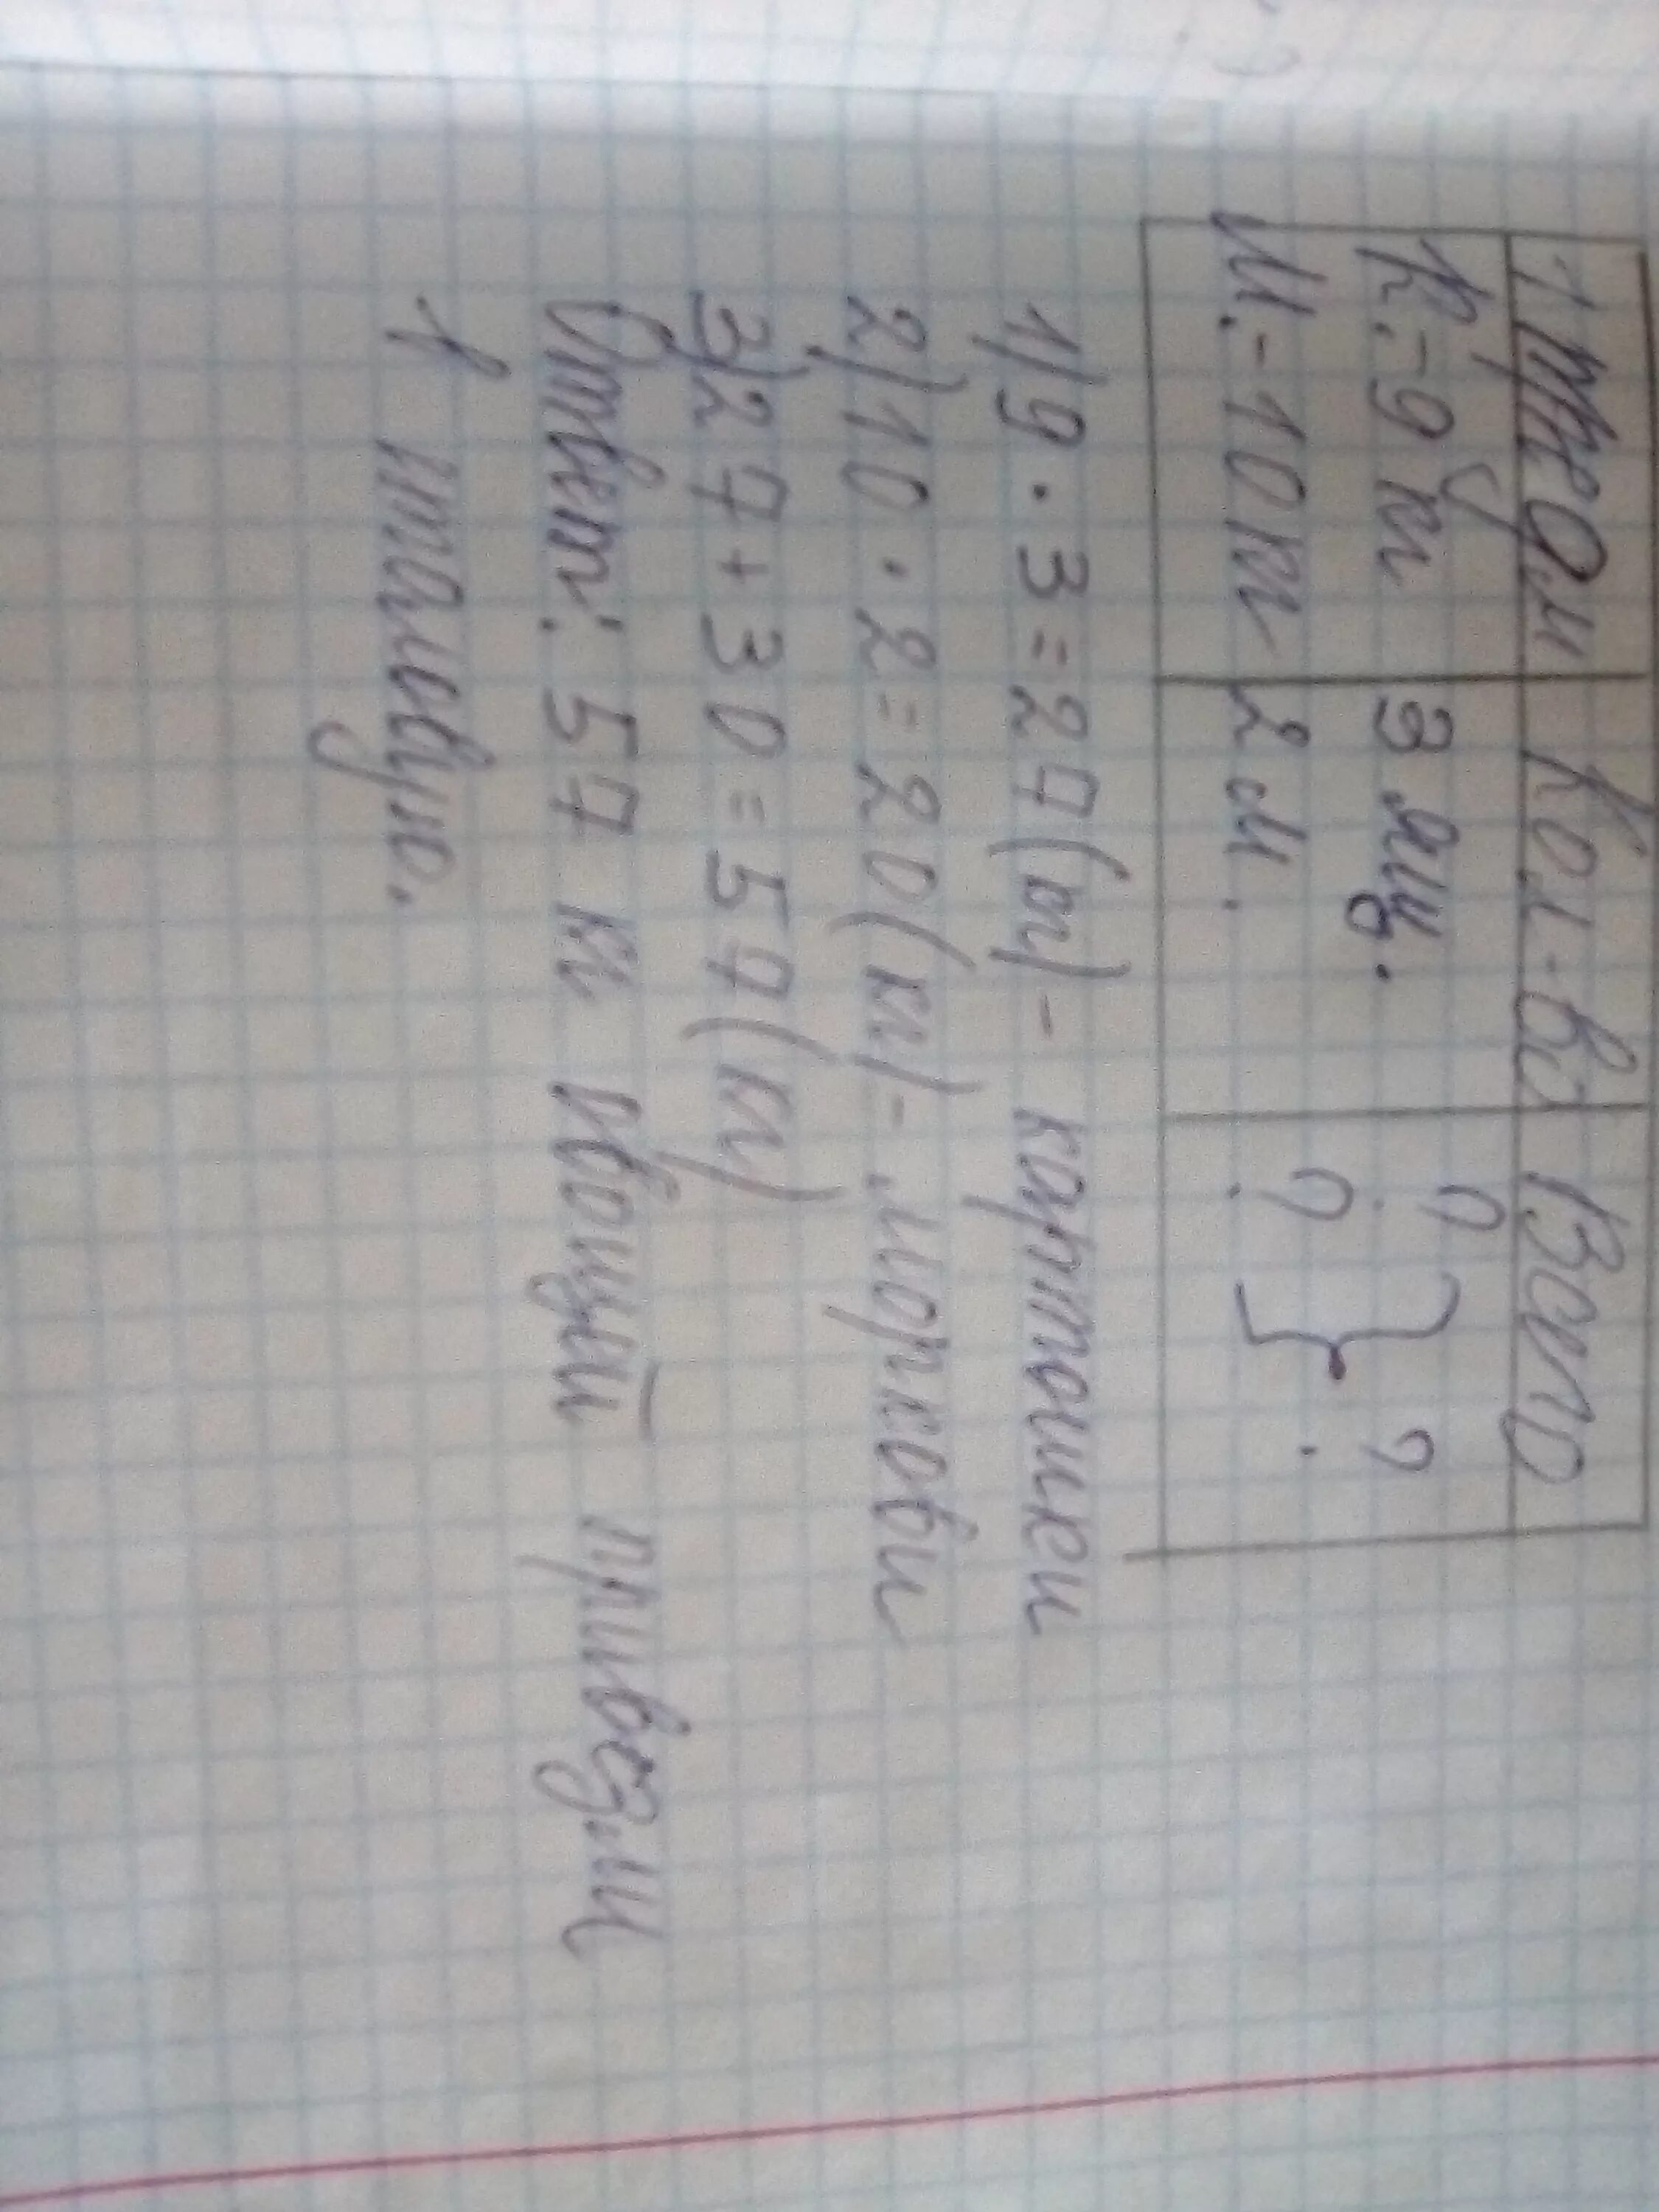 1 предм Кол-во Всего
К. - 9 кг 3 ящ. ? } ?
М. - 10 кг 2 м. ?
1) 9 · 3 = 27 (кг) - картошки
2) 10 · 2 = 20 (кг) - моркови
3) 27 + 30 = 57 (кг)
Ответ: 57 кг овощей привезли
в столовую.